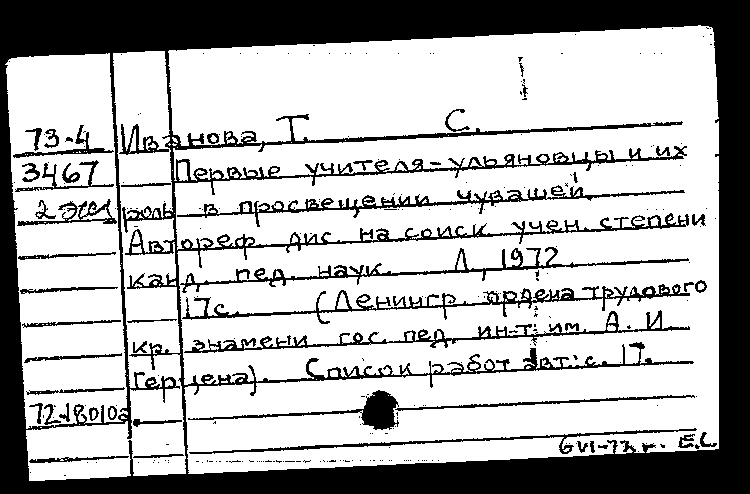 73-4 Иванова, Т. С.
3467 Первые учителя-ульяновцы и их
2 экз роль в просвещении чувашей.
Автореф. дис. на соиск учен. степени
канд. пед. наук. Л, 1972.
17с. (Ленингр. ордена трудового
кр. знамени гос. пед. ин-т. им. А. И.
Герцена). Список работ авт.: с. 17.
72-18010а.
6VI-73г. Е.С.